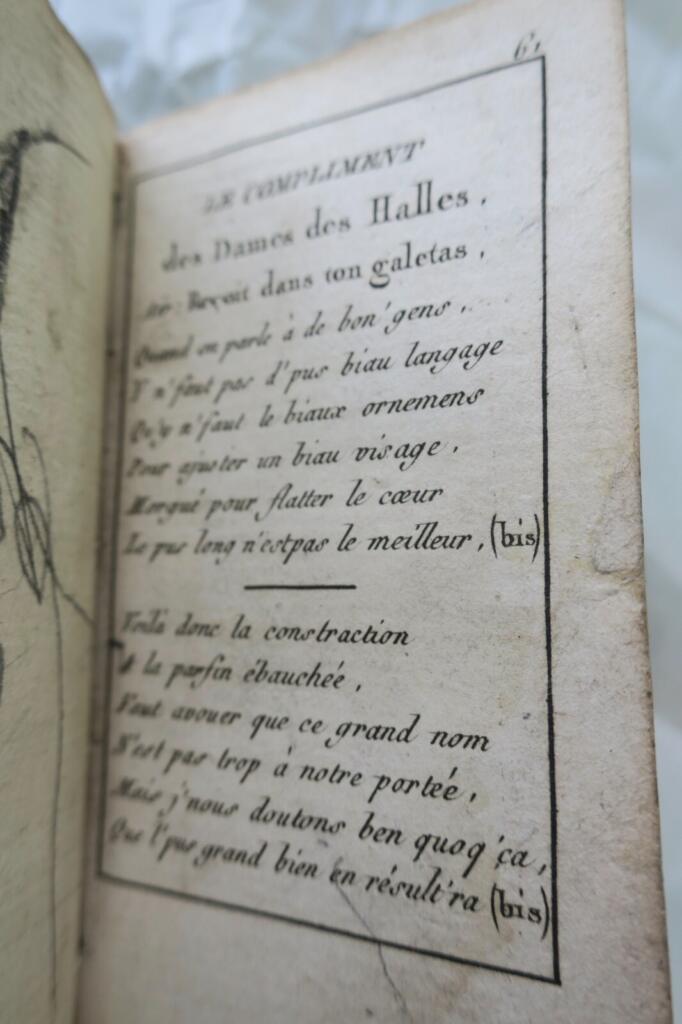 61
LE COMPLIMENT
des Dames des Halles.
Air: Reçoit dans ton galetas.
Quand on parle à de bon'gens.
Y n'faut pas d'pus biau langage
Qu'y n'faut le biaux ornemens
Pour ajuster un biau visage.
Morgué pour flatter le cœur
Le pus long n'estpas le meilleur, (bis)
Voila donc la constraction
A la parfin ébauchée,
Faut avouer que ce grand nom
N'est pas trop à notre portée,
Mais j'nous doutons ben quoq'ça,
Que l'pus grand bien en résult'ra (bis)